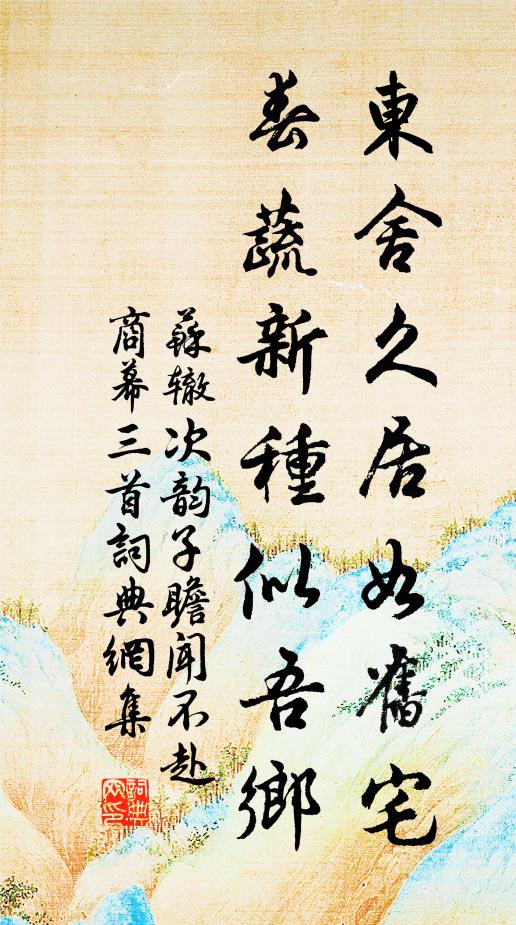 東舍久居如舊宅
春蔬新種似吾鄉
蘇辙次韵子瞻闻不赴
商幕三首詞典網集
詞典
网印